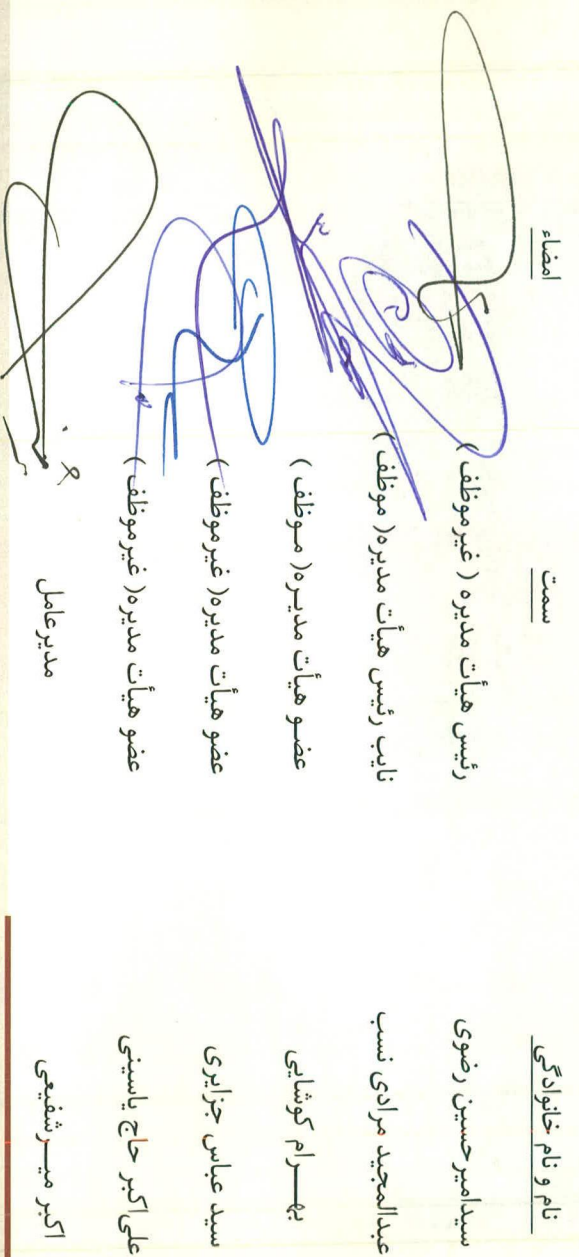 نام و نام خانوادگی سمت امضاء
سیدامیرحسین رضوی رئیس هیأت مدیره ( غیرموظف )
عبدالمجید مرادی نسب نایب رئیس هیأت مدیره( موظف )
بهــرام کوشایی عضـو هیأت مدیـره( مـوظف )
سید عباس جزایری عضو هیأت مدیره( غیرموظف )
علی‌اکبر حاج یاسینی عضو هیأت مدیره( غیرموظف )
اکبر میــرشفیعی مدیرعامل